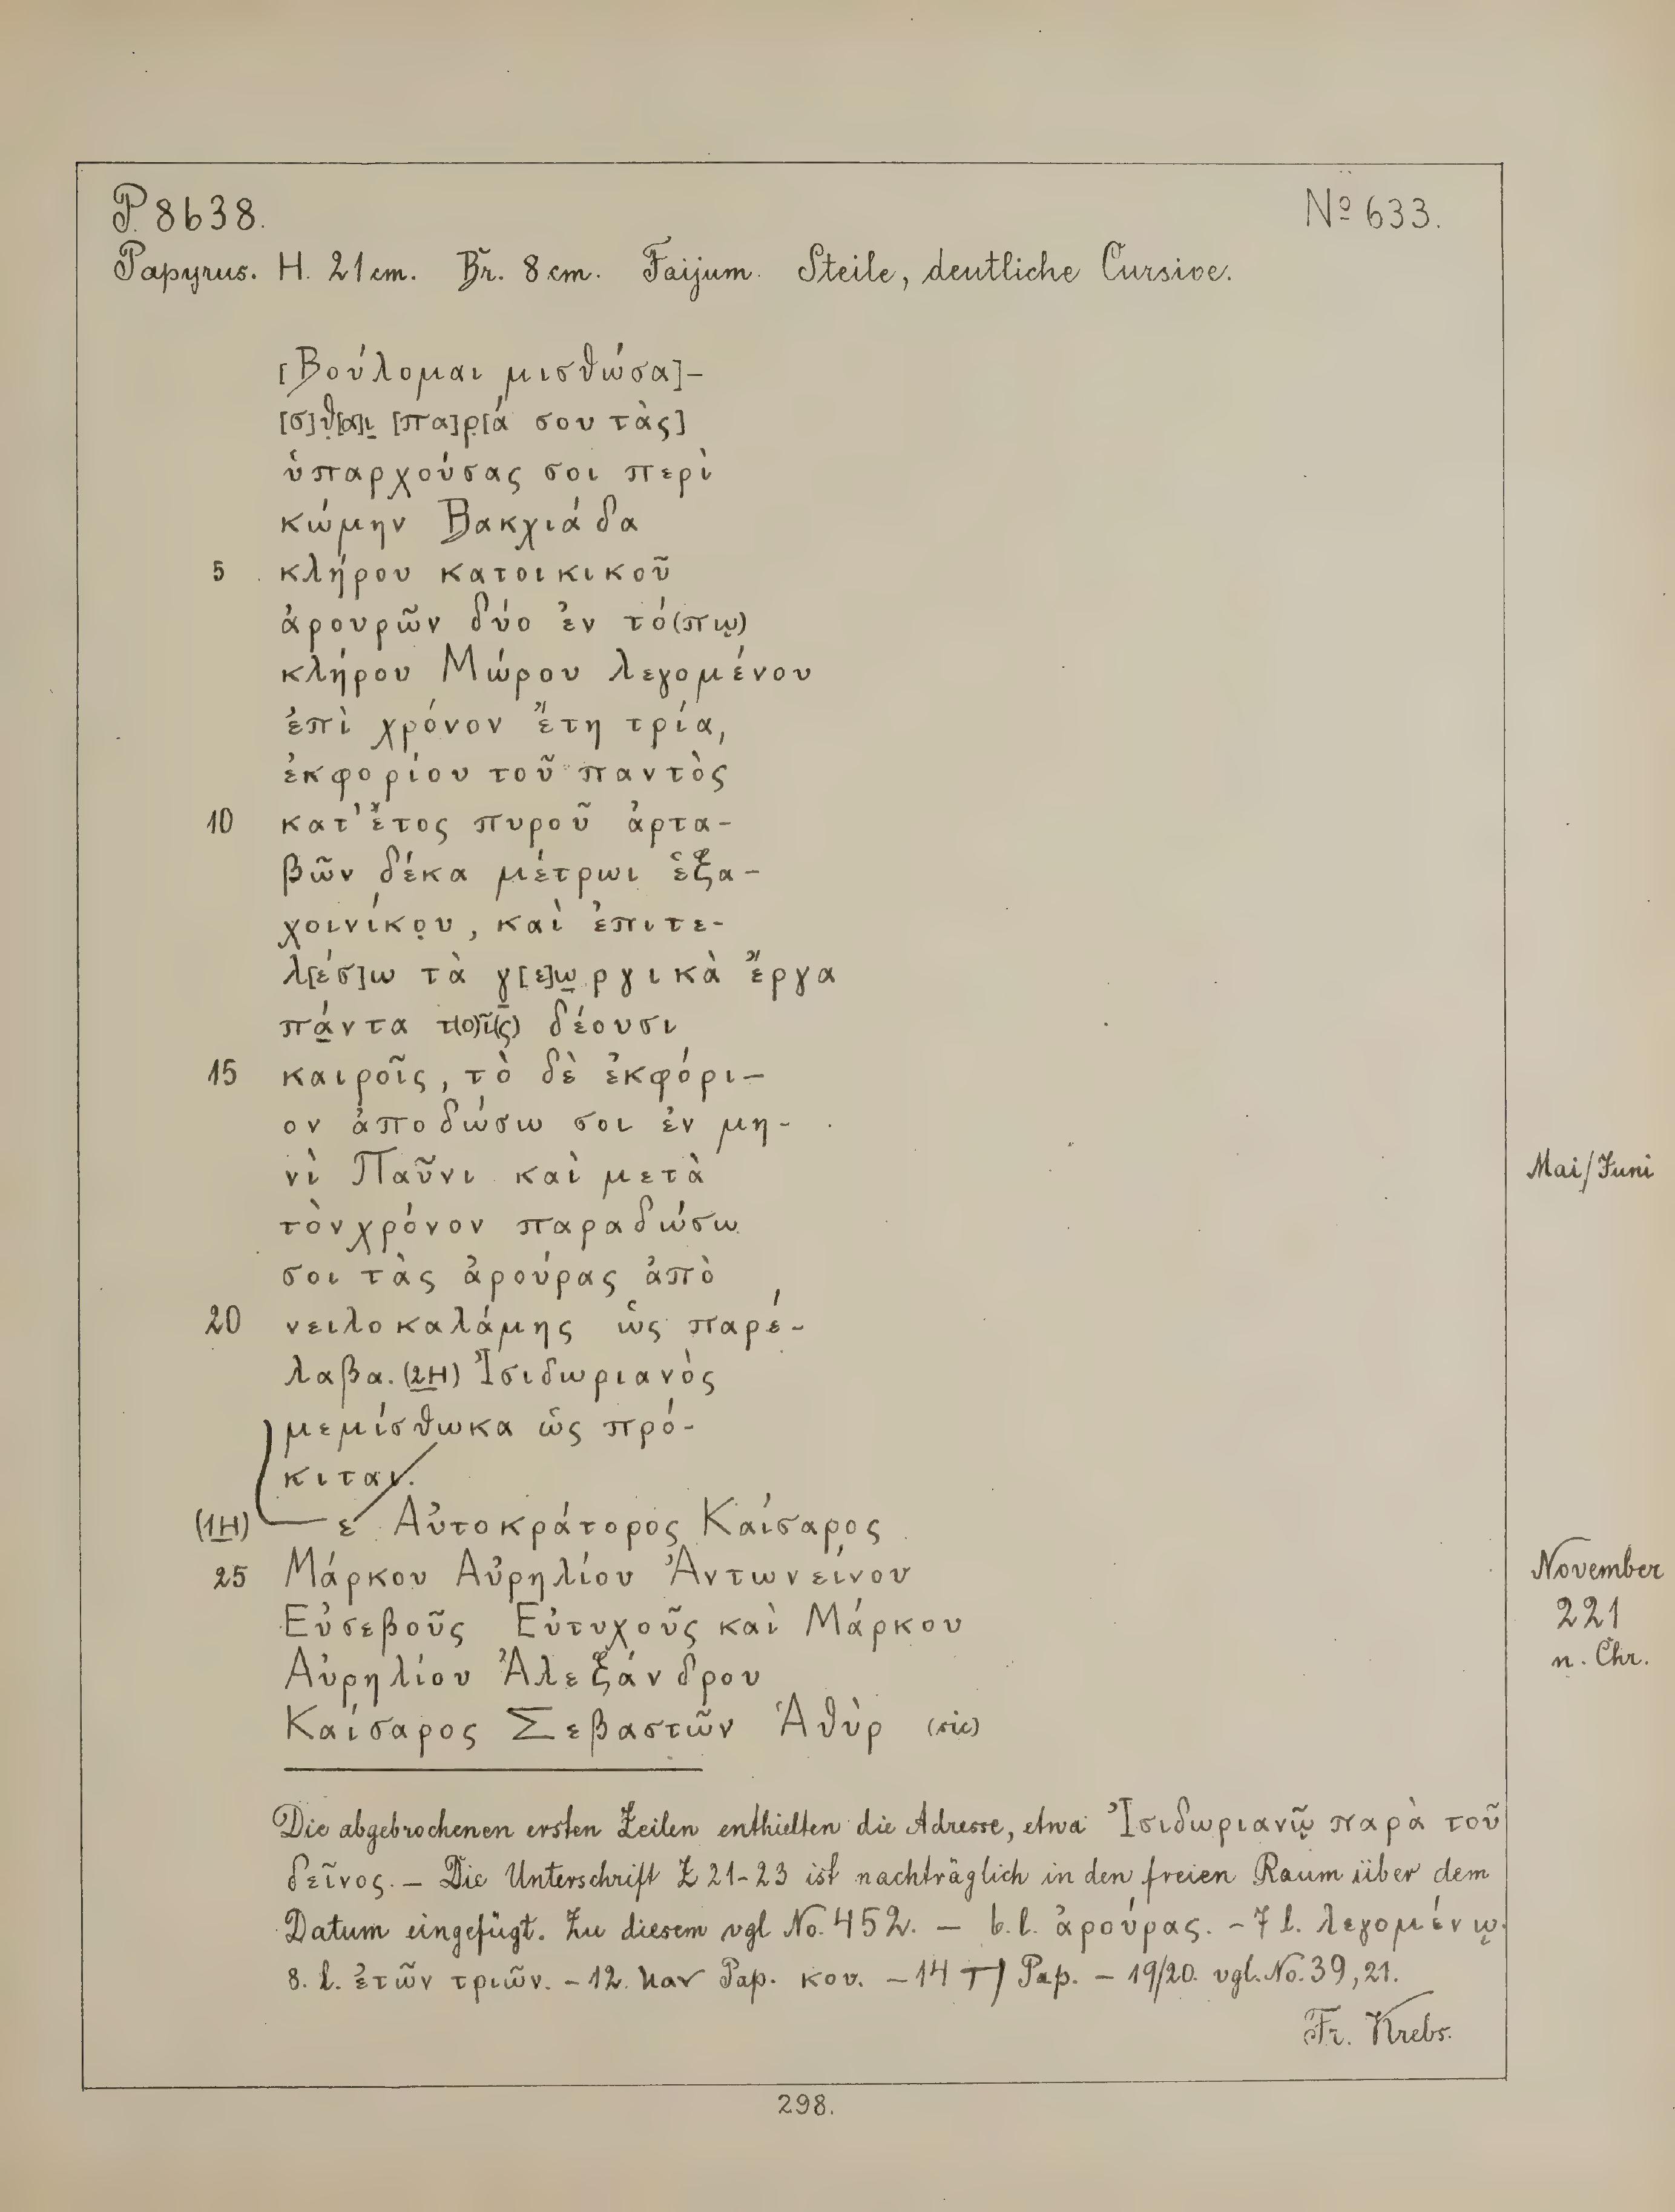 P. 8638.
Nº 633.
Papyrus. H. 21 cm. Br. 8 cm. Faijum. Steile, deutliche Cursive.
[Βούλομαι μισθώσα]-
[σ]θ̣[α]ι̣ [πα]ρ̣[ά σου τὰς]
ὑπαρχούσας σοι περὶ
κώμην Βακχιάδα
5 κλήρου κατοικικοῦ
ἀρουρῶν δύο ἐν τό(πῳ)
κλήρου Μώρου λεγομένου
ἐπὶ χρόνον ἔτη τρία,
ἐκφορίου τοῦ παντὸς
10 κατ' ἔτος πυροῦ ἀρτα-
βῶν δέκα μέτρωι ἑξα-
χοινίκο̣υ, καὶ ἐπιτε-
λ[έσ]ω τὰ γ̣[ε]ω̣ργικὰ ἔργα
πά̣ντα τ(ο)ῖ(ς) δέουσι
15 καιροῖς, τὸ δὲ ἐκφόρι-
ον ἀποδώσω σοι ἐν μη-
νὶ Παῦνι καὶ μετὰ
Mai/Juni
τὸν χρόνον παραδώσω
σοι τὰς ἀρούρας ἀπὸ
20 νειλοκαλάμης ὡς παρέ-
λαβα. (2H) Ἰσιδωριανὸς
μεμίσθωκα ὡς πρό-
κιται.
(1H) ε Αὐτοκράτορος Καίσαρος
25 Μάρκου Αὐρηλίου Ἀντωνείνου
November
Εὐσεβοῦς Εὐτυχοῦς καὶ Μάρκου
221
Αὐρηλίου Ἀλεξάνδρου
n. Chr.
Καίσαρος Σεβαστῶν Ἁθὺρ (sic)
Die abgebrochenen ersten Zeilen enthielten die Adresse, etwa Ἰσιδωριανῷ παρὰ τοῦ
δεῖνος. — Die Unterschrift Z 21-23 ist nachträglich in den freien Raum über dem
Datum eingefügt. Zu diesem vgl No. 452. — 6. l. ἀρούρας. - 7 l. λεγομένῳ.
8. l. ἐτῶν τριῶν. - 12. Pap. κου. - 14 Pap. - 19/20. vgl. No. 39, 21.
Fr. Krebs.
298.